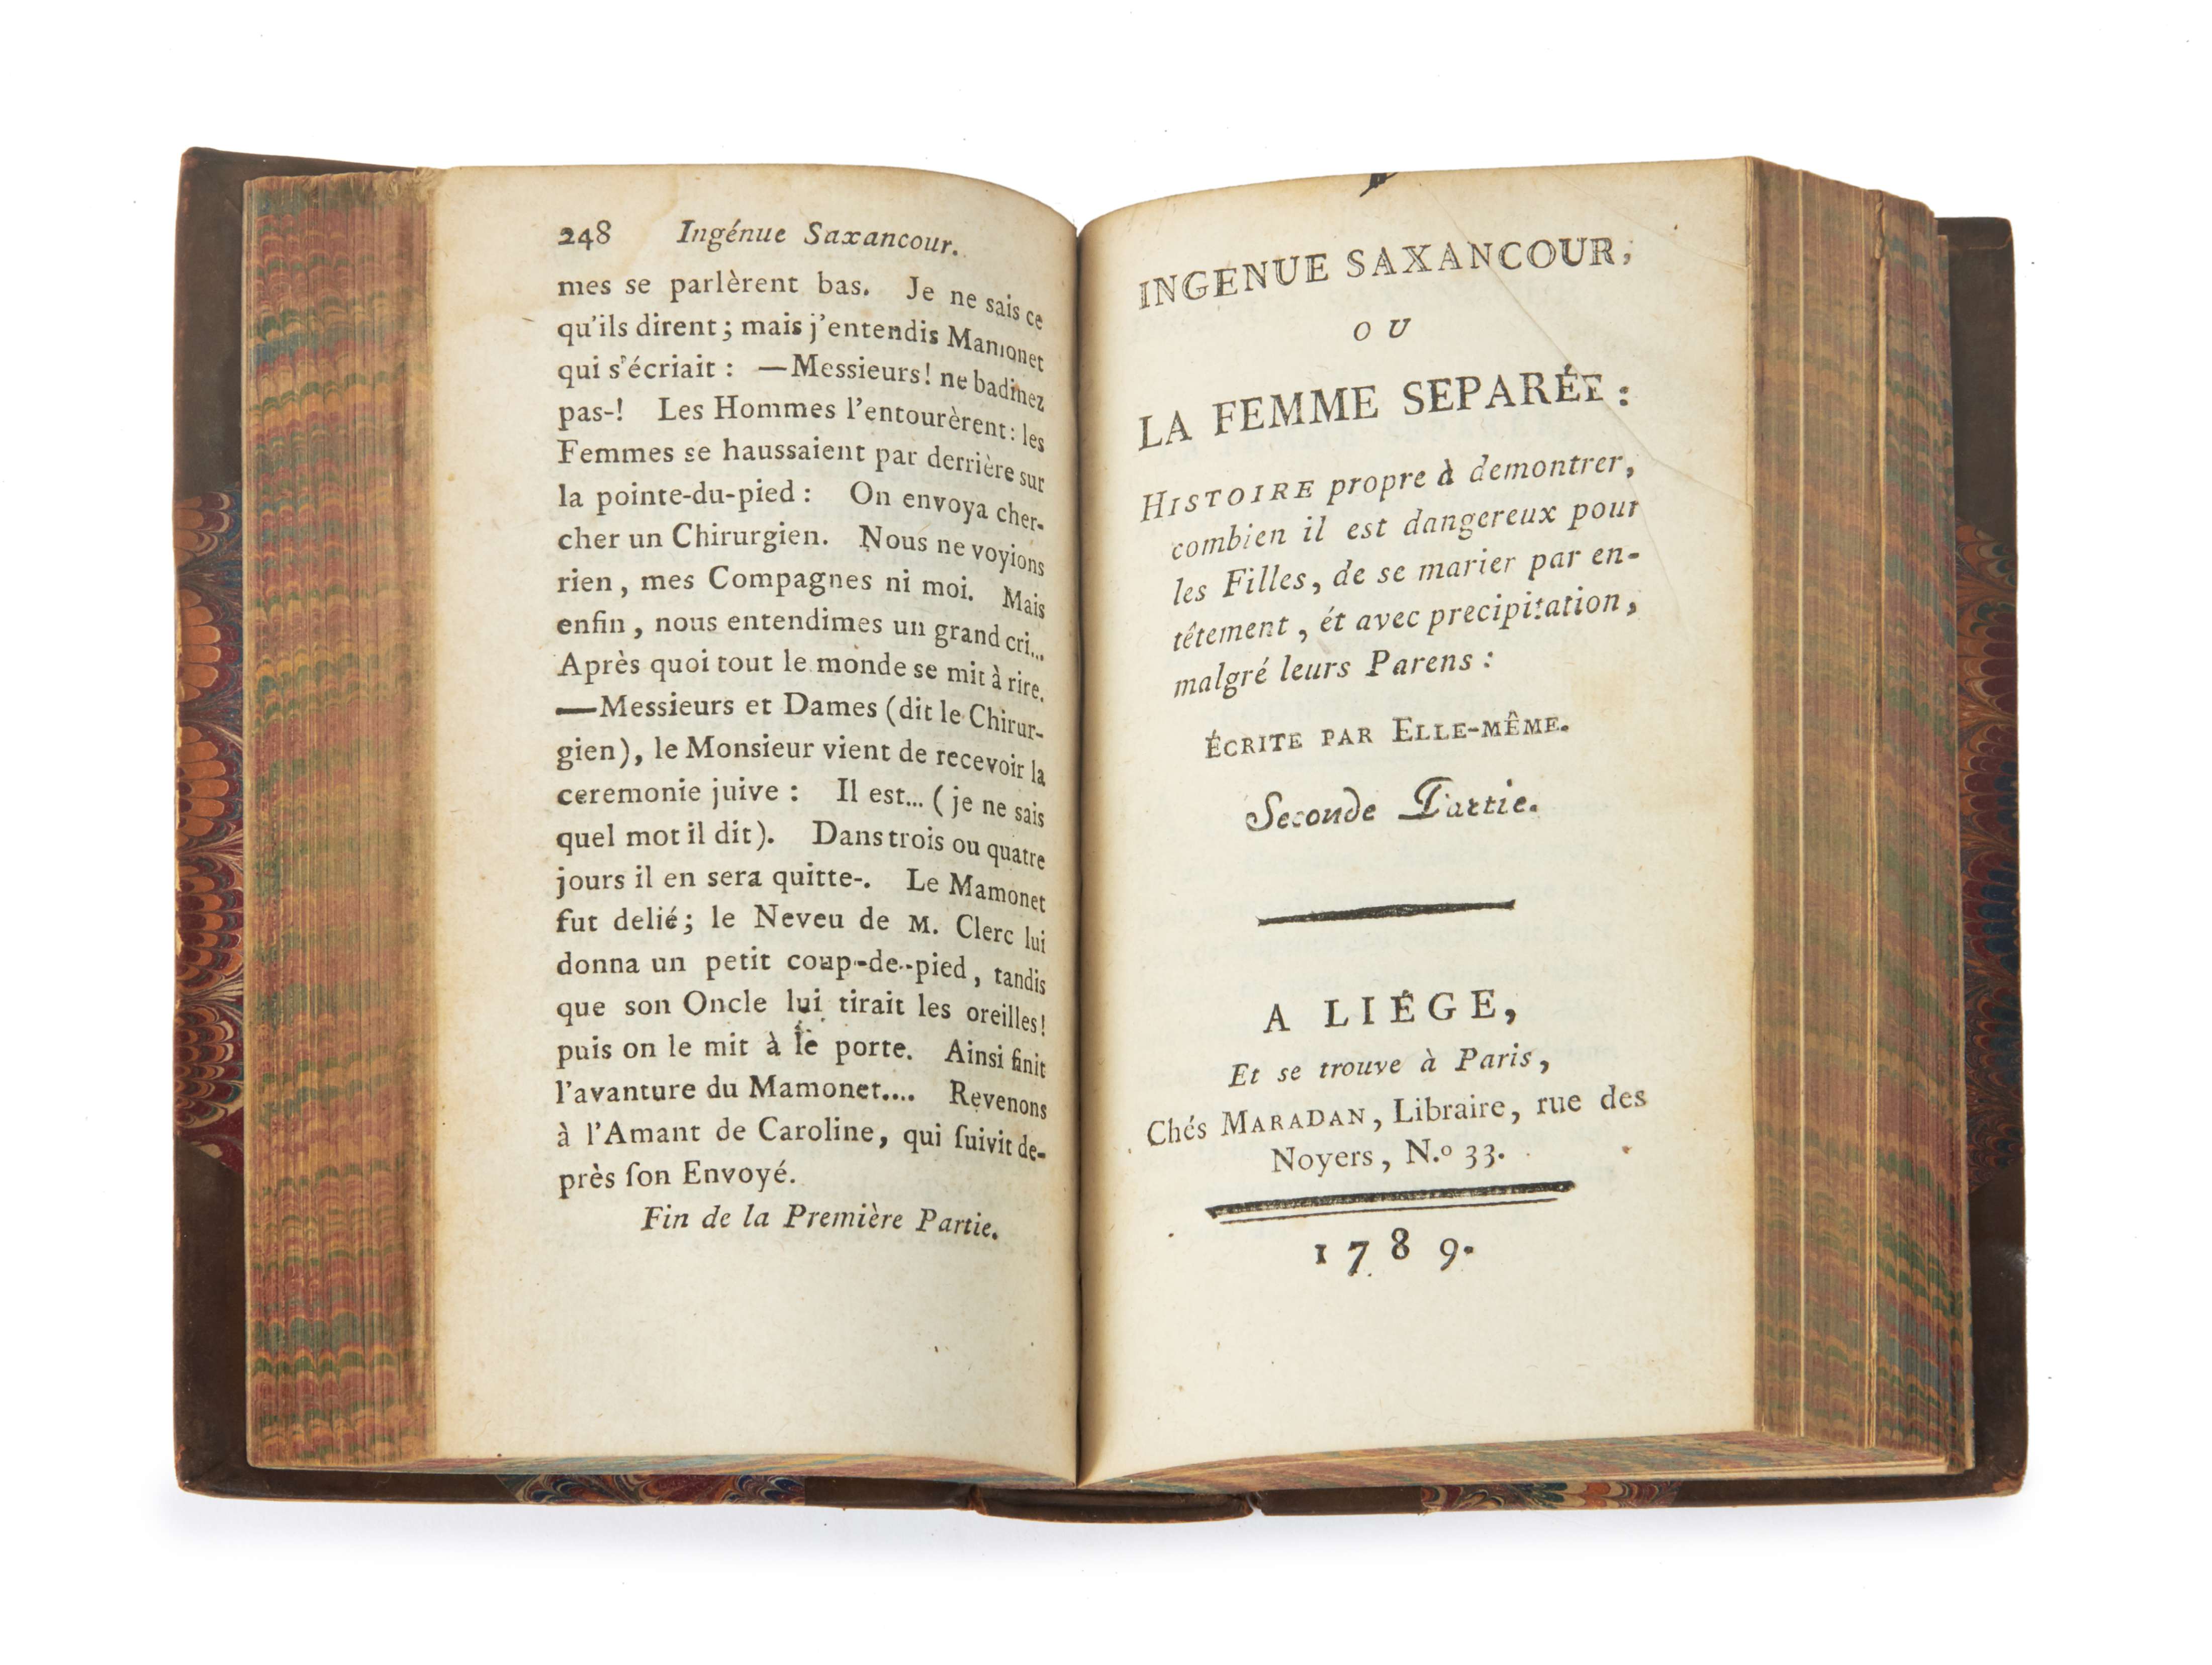 248 Ingénue Saxancour.
mes se parlèrent bas. Je ne sais ce
qu'ils dirent ; mais j'entendis Mamonet
qui s'écriait : —Messieurs ! ne badinez
pas-! Les Hommes l'entourèrent : les
Femmes se haussaient par derrière sur
la pointe-du-pied : On envoya cher-
cher un Chirurgien. Nous ne voyions
rien, mes Compagnes ni moi. Mais
enfin, nous entendimes un grand cri...
Après quoi tout le monde se mit à rire.
—Messieurs et Dames (dit le Chirur-
gien), le Monsieur vient de recevoir la
ceremonie juive : Il est... (je ne sais
quel mot il dit). Dans trois ou quatre
jours il en sera quitte-. Le Mamonet
fut delié; le Neveu de M. Clerc lui
donna un petit coup-de-pied, tandis
que son Oncle lui tirait les oreilles !
puis on le mit à le porte. Ainsi finit
l'avanture du Mamonet.... Revenons
à l'Amant de Caroline, qui ſuivit de-
près ſon Envoyé.
Fin de la Première Partie.
INGENUE SAXANCOUR,
OU
LA FEMME SEPARÉE :
HISTOIRE propre à demontrer,
combien il est dangereux pour
les Filles, de se marier par en-
têtement, ét avec precipitation,
malgré leurs Parens :
ÉCRITE PAR ELLE-MÊME.
Seconde Partie.
A LIÉGE,
Et se trouve à Paris,
Chés MARADAN, Libraire, rue des
Noyers, N.o 33.
1789.